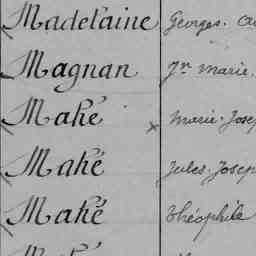 Madelaine Georges.
Magnan Jn Marie.
Mahé × Marie-Josep
Mahé Jules-Josep
Mahé Théophile